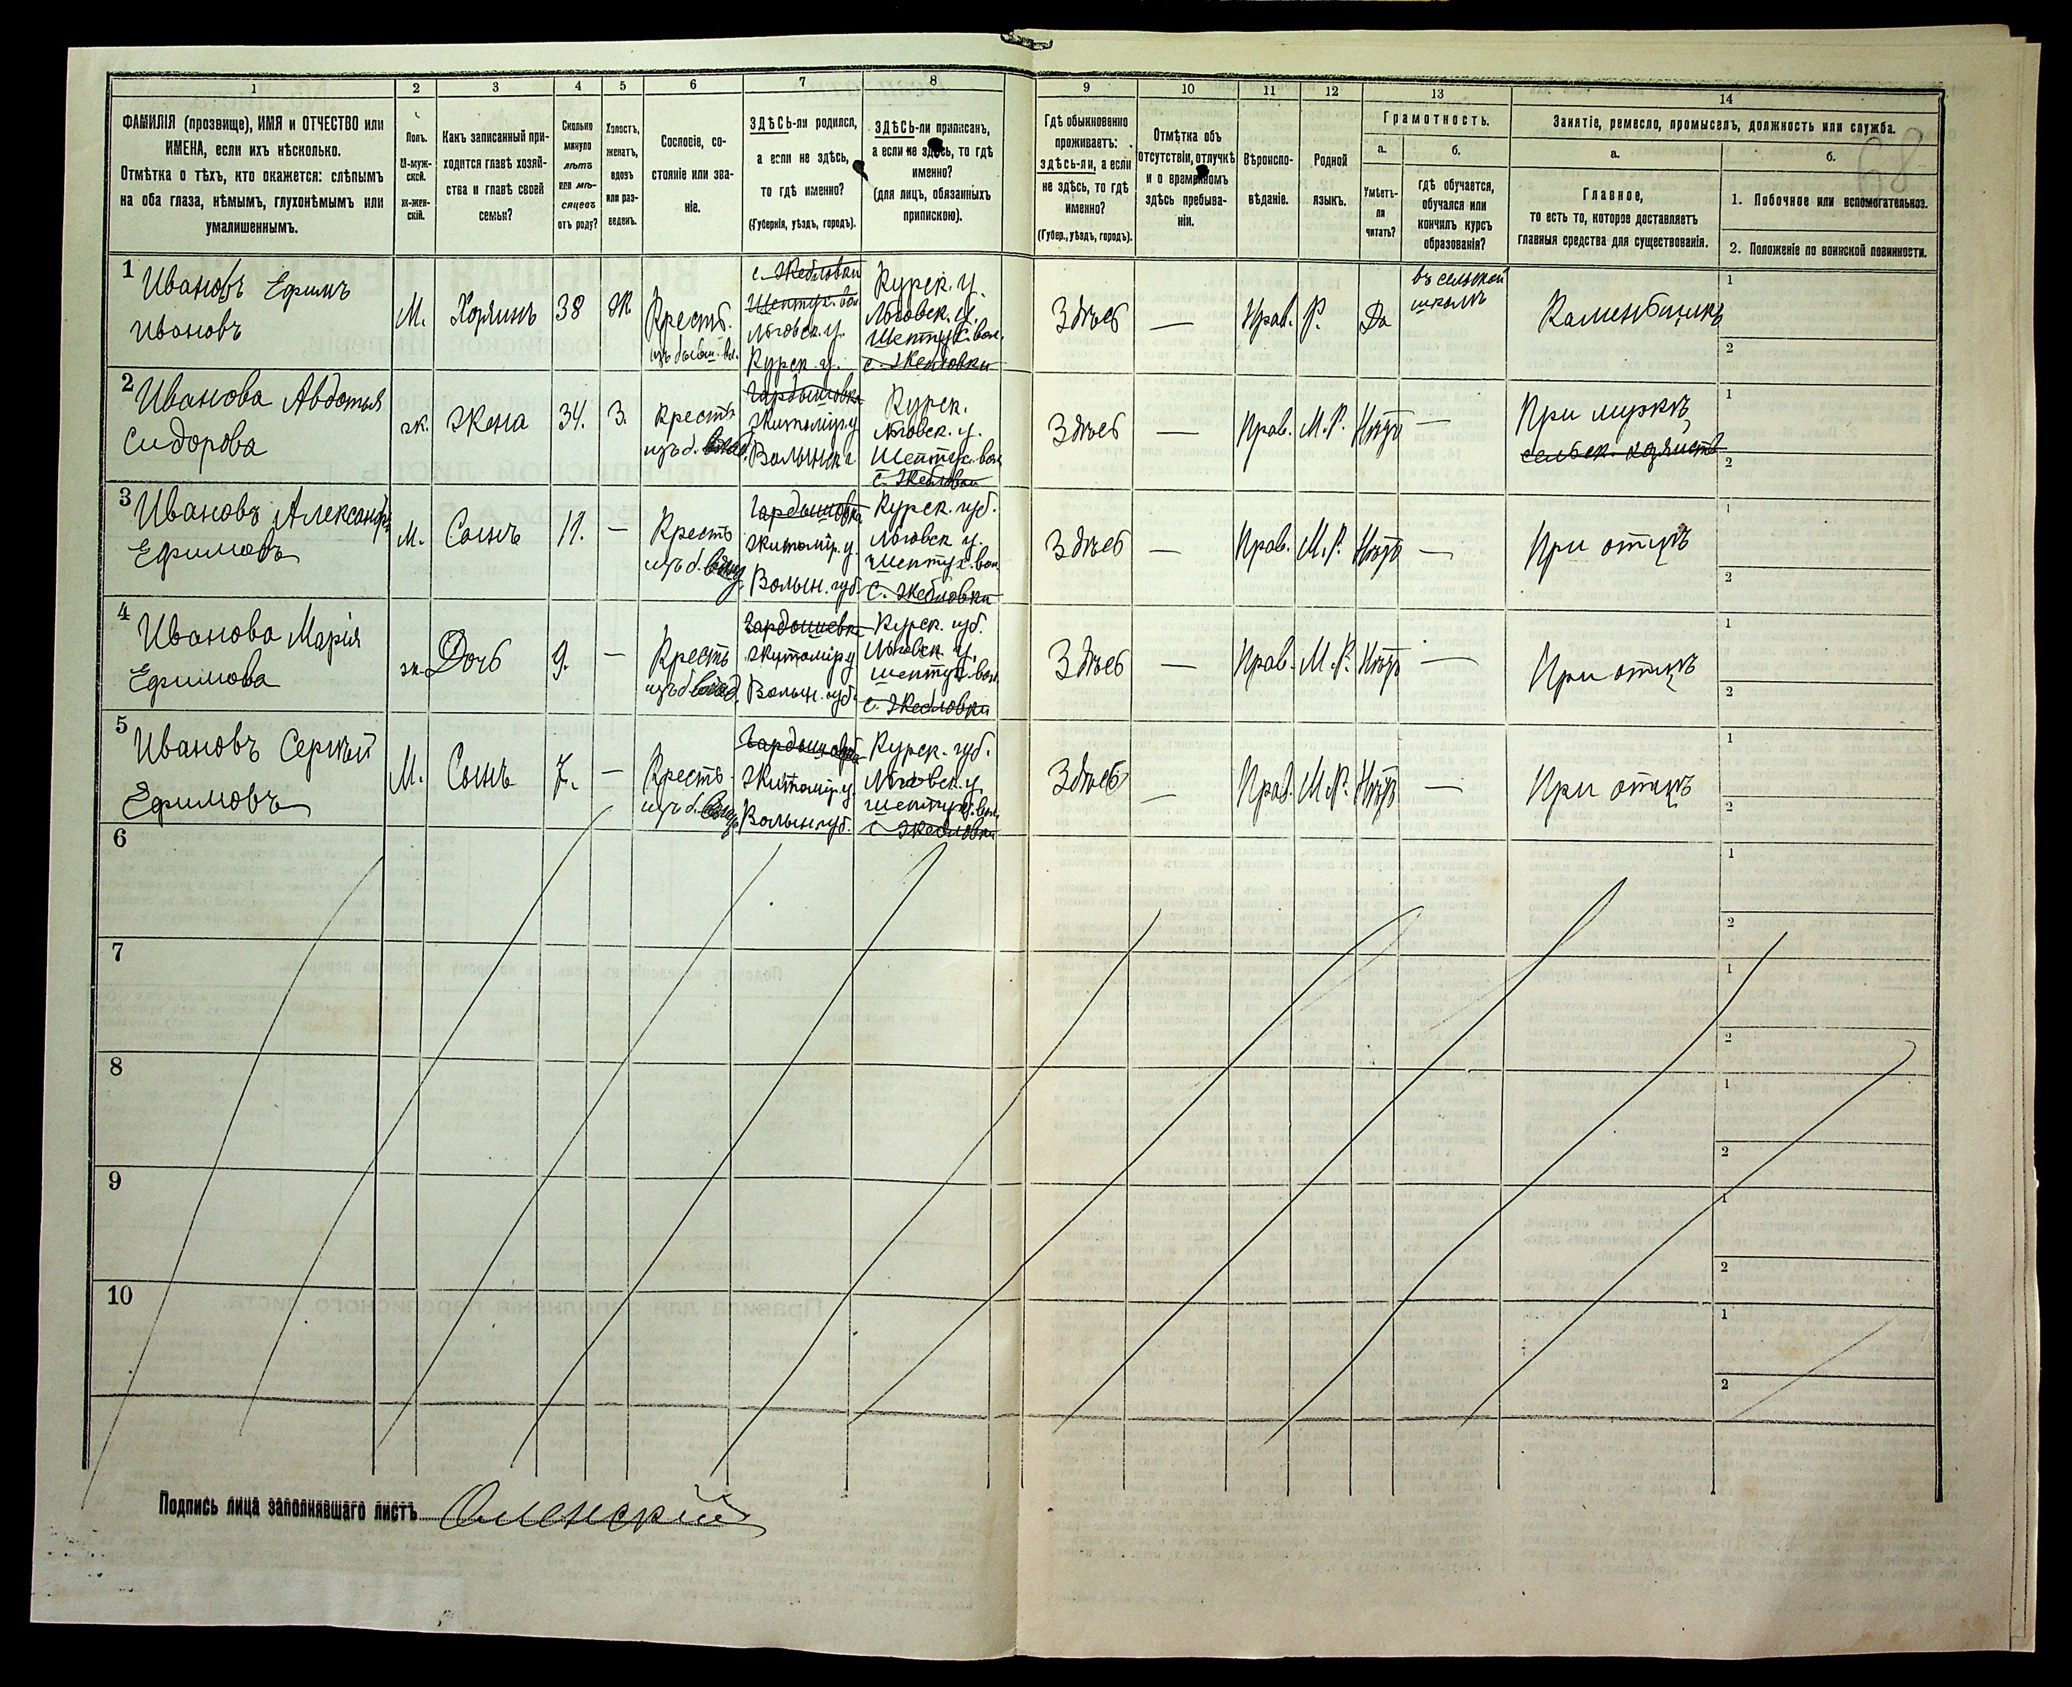 1 2 3 4 5 6 7 8 9 10 11 12 13 14
ФАМИЛІЯ (прозвище), ИМЯ и ОТЧЕСТВО или
ИМЕНА, если ихъ нѣсколько.
Отмѣтка о тѣхъ, кто окажется: слѣпымъ
на оба глаза, нѣмымъ, глухонѣмымъ или
умалишеннымъ.
Полъ.
М-муж-
ской.
ж-жен-
скій.
Какъ записанный при-
ходится главѣ хозяй-
ства и главѣ своей
семьи?
Сколько
минуло
лѣтъ
или мѣ-
сяцевъ
отъ роду?
Холостъ,
женатъ,
вдовъ
или раз-
веденъ.
Сословіе, со-
стояніе или зва-
ніе.
ЗДѢСЬ-ли родился,
а если не здѣсь,
то гдѣ именно?
(Губернія, уѣздъ, городъ).
ЗДѢСЬ-ли приписанъ,
а если не здѣсь, то гдѣ
именно?
(для лицъ, обязанныхъ
припискою).
Гдѣ обыкновенно
проживаетъ:
здѣсь-ли, а если
не здѣсь, то гдѣ
именно?
(Губер., уѣздъ, городъ).
Отмѣтка объ
отсутствіи, отлучкѣ
и о временномъ
здѣсь пребыва-
ніи.
Вѣроиспо-
вѣданіе.
Родной
языкъ.
Грамотность.
а.
Умѣетъ-
ли
читать?
б.
гдѣ обучается,
обучался или
кончилъ курсъ
образованія?
Занятіе, ремесло, промыселъ, должность или служба.
а.
Главное,
то есть то, которое доставляетъ
главныя средства для существованія.
б.
68
1. Побочное или вспомогательное.
2. Положеніе по воинской повинности.
1
Ивановъ Ефимъ
Ивановъ
М.
Хозяинъ
38
Ж
Крестъ.
изъ бывш. вл.
с. Жебловки
Шептух. вол.
Льговск. у.
Курск. г.
Курск. г.
Льговск. у.
Шептух. вол.
с. Жебловки
Здѣсь
—
Прав.
Р.
Да
въ сельской
школѣ
Каменьщикъ
1
2
2
Иванова Авдотья
Сидорова
ж.
Жена
34.
З.
Крестъ
изъ б. влад.
Гардышовка
Житомір. у
Волынск. г.
Курск.
Льговск. у.
Шептух. вол.
с. Жебловки
Здѣсь
—
Прав.
М.Р.
Нѣтъ
—
При мужѣ
сельск. хозяйств
1
2
3
Ивановъ Александръ
Ефимовъ
М.
Сынъ
11.
—
Крестъ
изъ б. влад.
Гардышовка
Житомір. у.
Волын. губ.
Курск. губ.
Льговск у.
Шептух. вол.
С. Жебловки
Здѣсь
—
Прав.
М.Р.
Нѣтъ
—
При отцѣ
1
2
4
Иванова Марія
Ефимова
ж.
Дочь
9.
—
Крестъ
изъ б. влад.
Гардышевка
Житомір у
Волын. губ.
Курск. губ.
Льговск у.
Шептух. вол.
с. Жебловки
Здѣсь
—
Прав.
М.Р.
Нѣтъ
—
При отцѣ
1
2
5
Ивановъ Сергѣй
Ефимовъ
М.
Сынъ
7.
—
Крестъ
изъ б. влад.
Гардышовка
Житомір. у
Волын. губ.
Курск. губ.
Льговск. у.
Шептух. вол.
с. Жебловки
Здѣсь
—
Прав.
М.Р.
Нѣтъ
—
При отцѣ
1
2
6
1
2
7
1
2
8
1
2
9
1
2
10
1
2
Подпись лица заполнявшаго листъ Оленскій